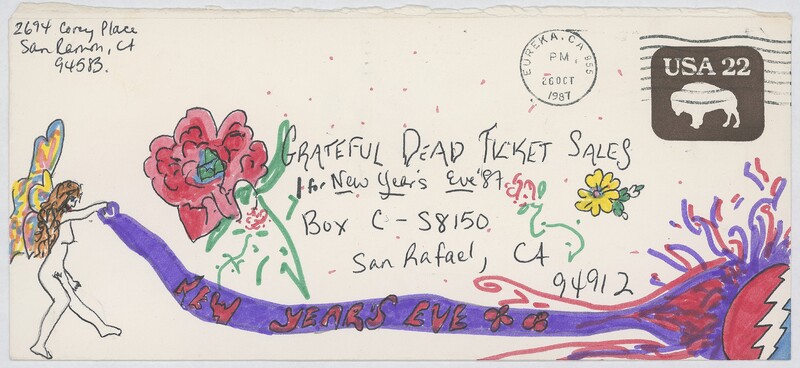 2694 Corey Place
San Ramon, CA
94583.
EUREKA, CA 955
PM
26 OCT
1987
USA 22
GRATEFUL DEAD TICKET SALES
1 for New Year's Eve '87
Box C-S8150
San Rafael, CA
94912
NEW YEAR'S EVE